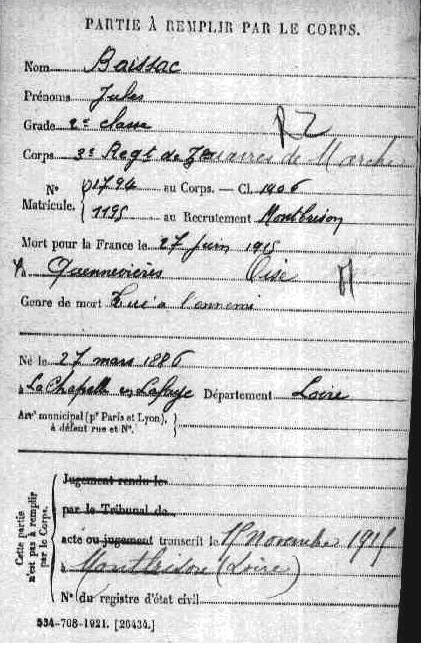 PARTIE À REMPLIR PAR LE CORPS.
Nom Boissac
Prénoms Jules
Grade 2e classe
Corps 3e Régt de Zouaves de Marche
N° Matricule. { 01794 au Corps. — Cl. 1906
1195 au Recrutement Montbrison
Mort pour la France le 27 juin 1915
à Quennevières Oise
Genre de mort Tué à l'ennemi
Né le 27 mars 1886
à La Chapelle en Lafaye Département Loire
Arrt municipal (pr Paris et Lyon), à défaut rue et N°.
Cette partie n'est pas à remplir par le Corps.
Jugement rendu le
par le Tribunal de
acte ou jugement transcrit le novembre 1915
à Montbrison (Loire)
N° du registre d'état civil
534-708-1921. [26434.]